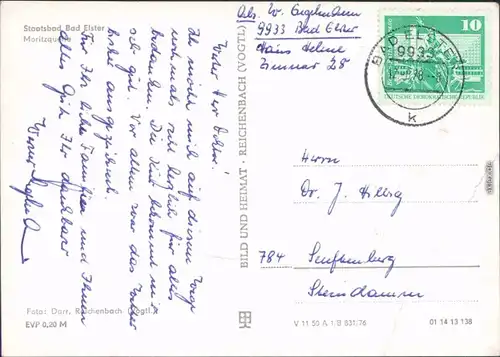 Staatsbad Bad Elster
Moritzquelle
Abs. W.
9933 Bad Elster
Haus Helene
Zimmer 28
10
DEUTSCHE DEMOKRATISCHE REPUBLIK
BAD ELSTER
9933
k
Werter Herr Doktor!
Ich möchte mich auf diesem Wege
nochmals recht herzlich für alles
bedanken. Die Kur bekommt mir
sehr gut. Vor allem war das Wetter
bisher ausgezeichnet.
Für Ihre liebe Familie und Ihnen
alles Gute Ihr dankbarer
Werner
BILD UND HEIMAT REICHENBACH (VOGTL)
Herrn
Dr. J. Hillig
784 Senftenberg
Steindamm
Foto: Darr, Reichenbach (Vogtl.)
EVP 0,20 M
V 11 50 A 1 B 631/76
01 14 13 138